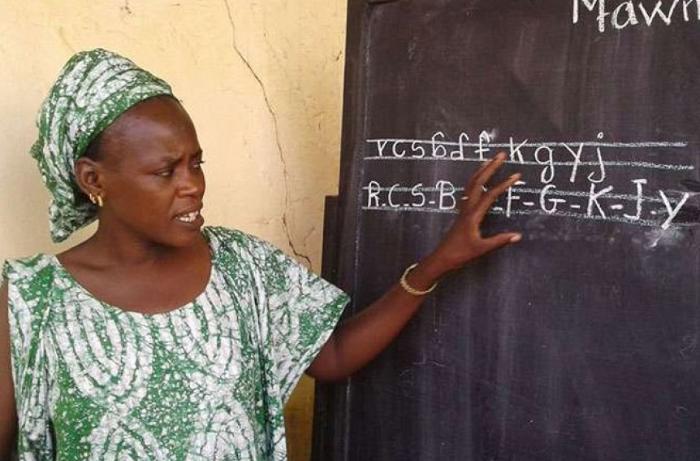 Mawn
r c s b d f K g y j
R-C-S-B- -F-G-K-J-y